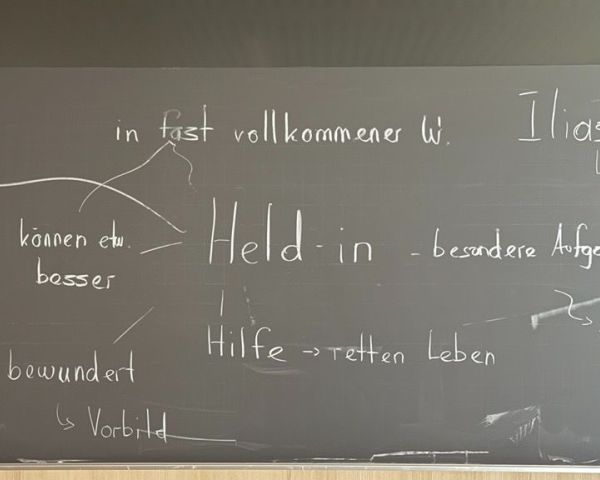 in fast vollkommener W.
Ilias
können etw.
besser
Held-in - besondere Aufge
Hilfe → retten Leben
bewundert
↳ Vorbild